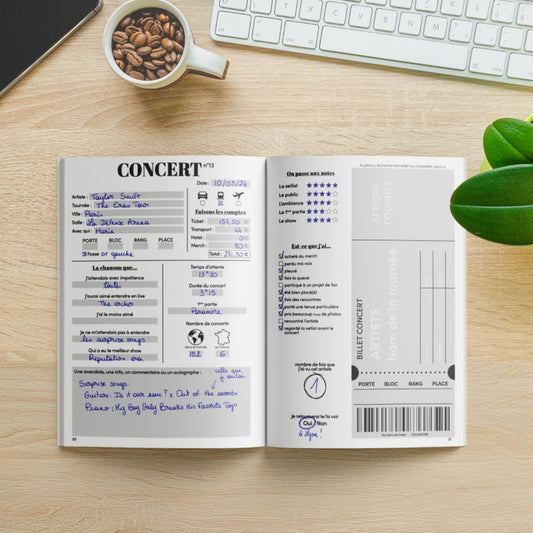 CONCERT n°13
Date : 10/05/24
Artiste : Taylor Swift
Tournée : The Eras Tour
Ville : Paris
Salle : La Défense Arena
Avec qui : Marie
PORTE BLOC RANG PLACE
fosse or gauche
Faisons les comptes
Ticket : €
Transport : 44 €
Hotel : 0 €
Merch : 80 €
Total : €
La chanson que...
j'attendais avec impatience
toutes
j'aurai aimé entendre en live
The Archer
j'ai le moins aimé
je ne m'attendais pas à entendre
les surprise songs
Qui a eu le meilleur show
Reputation era
Temps d'attente
13h30
Durée du concert
3h15
1ère partie
Paramore
Nombre de concerts
(dans le monde) (en France)
152 6
Une anecdote, une info, un commentaire ou un autographe :
Surprise songs :
Guitare : Is it over now? x Out of the woods
Piano : My Boy Only Breaks His Favorite Toys
30
On passe aux notes
La setlist
Le public
L'ambiance
La 1ère partie
Le show
Est-ce que j'ai...
acheté du merch
perdu ma voix
pleuré
fais la queue
participé à un projet de fan
été bien placé(e)
fais des rencontres
porté une tenue particulière
pris beaucoup de photos
rencontré l'artiste
regardé la setlist avant le concert
nombre de fois que
j'ai vu cet artiste
1
je retournerai le/la voir
Oui Non
à Lyon !
tu peux y scotcher ton billet ou compléter celui-ci
AFFICHE TOURNÉE
BILLET CONCERT
ARTISTE
Nom de la tournée
PORTE BLOC RANG PLACE
31